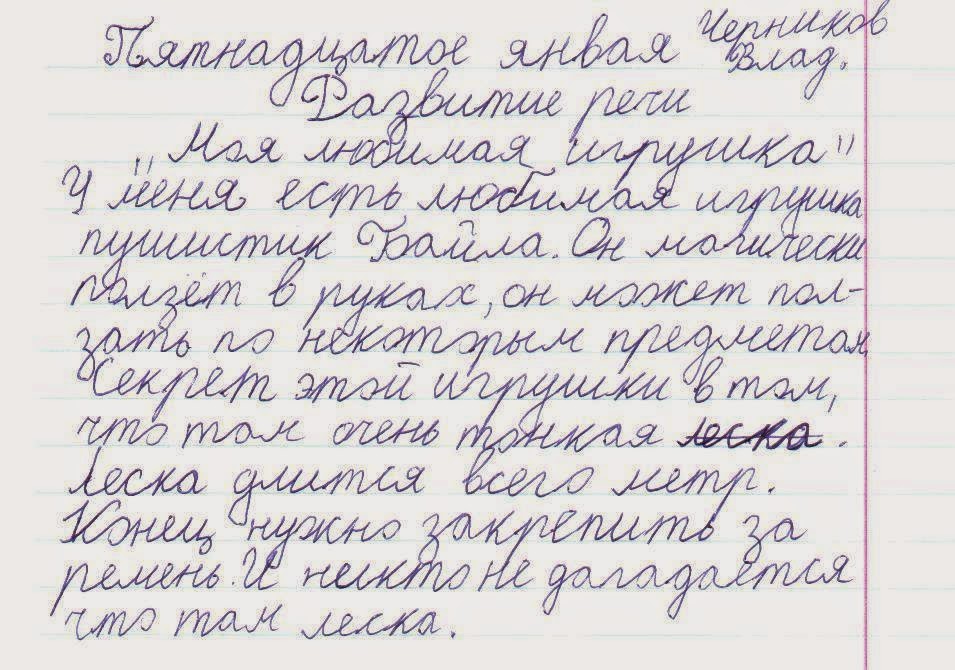 Черников
Пятнадцатое янвая Влад.
Развитие речи
"Моя любимая игрушка"
У меня есть любимая игрушка
пушистик Байла. Он магически
ползёт в руках, он может пол-
зать по некоторым предметам
Секрет этой игрушки в том,
что там очень тонкая леска.
Леска длится всего метр.
Конец нужно закрепить за
ремень. И некто не дагадается
что там леска.